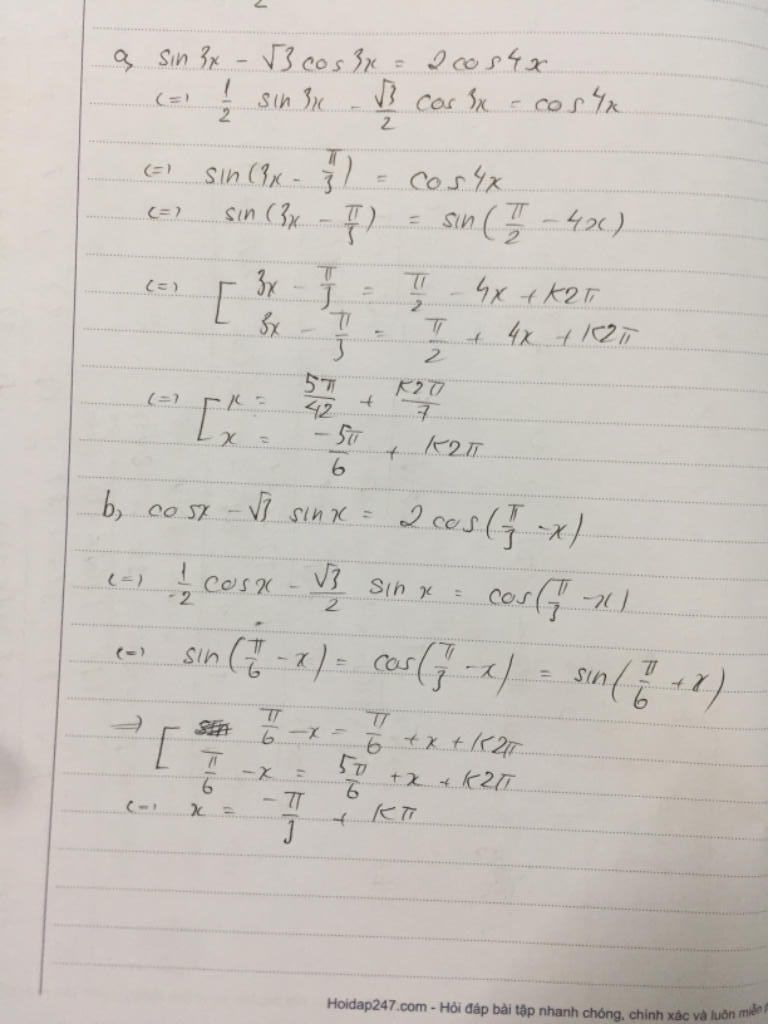 2
a, sin 3x - √3 cos 3x = 2 cos 4x
(=) 1/2 sin 3x - √3/2 cos 3x = cos 4x
(=) sin(3x - π/3) = cos 4x
(=) sin(3x - π/3) = sin(π/2 - 4x)
(=) [ 3x - π/3 = π/2 - 4x + K2π
3x - π/3 = π/2 + 4x + K2π
(=) [ x = 5π/42 + K2π/7
x = -5π/6 + K2π
b, cosx - √3 sinx = 2 cos(π/3 - x)
(=) 1/2 cosx - √3/2 sin x = cos(π/3 - x)
(=) sin(π/6 - x) = cos(π/3 - x) = sin(π/6 + x)
=> [ π/6 - x = π/6 + x + K2π
π/6 - x = 5π/6 + x + K2π
(=) x = -π/3 + Kπ
Hoidap247.com - Hỏi đáp bài tập nhanh chóng, chính xác và luôn miễn